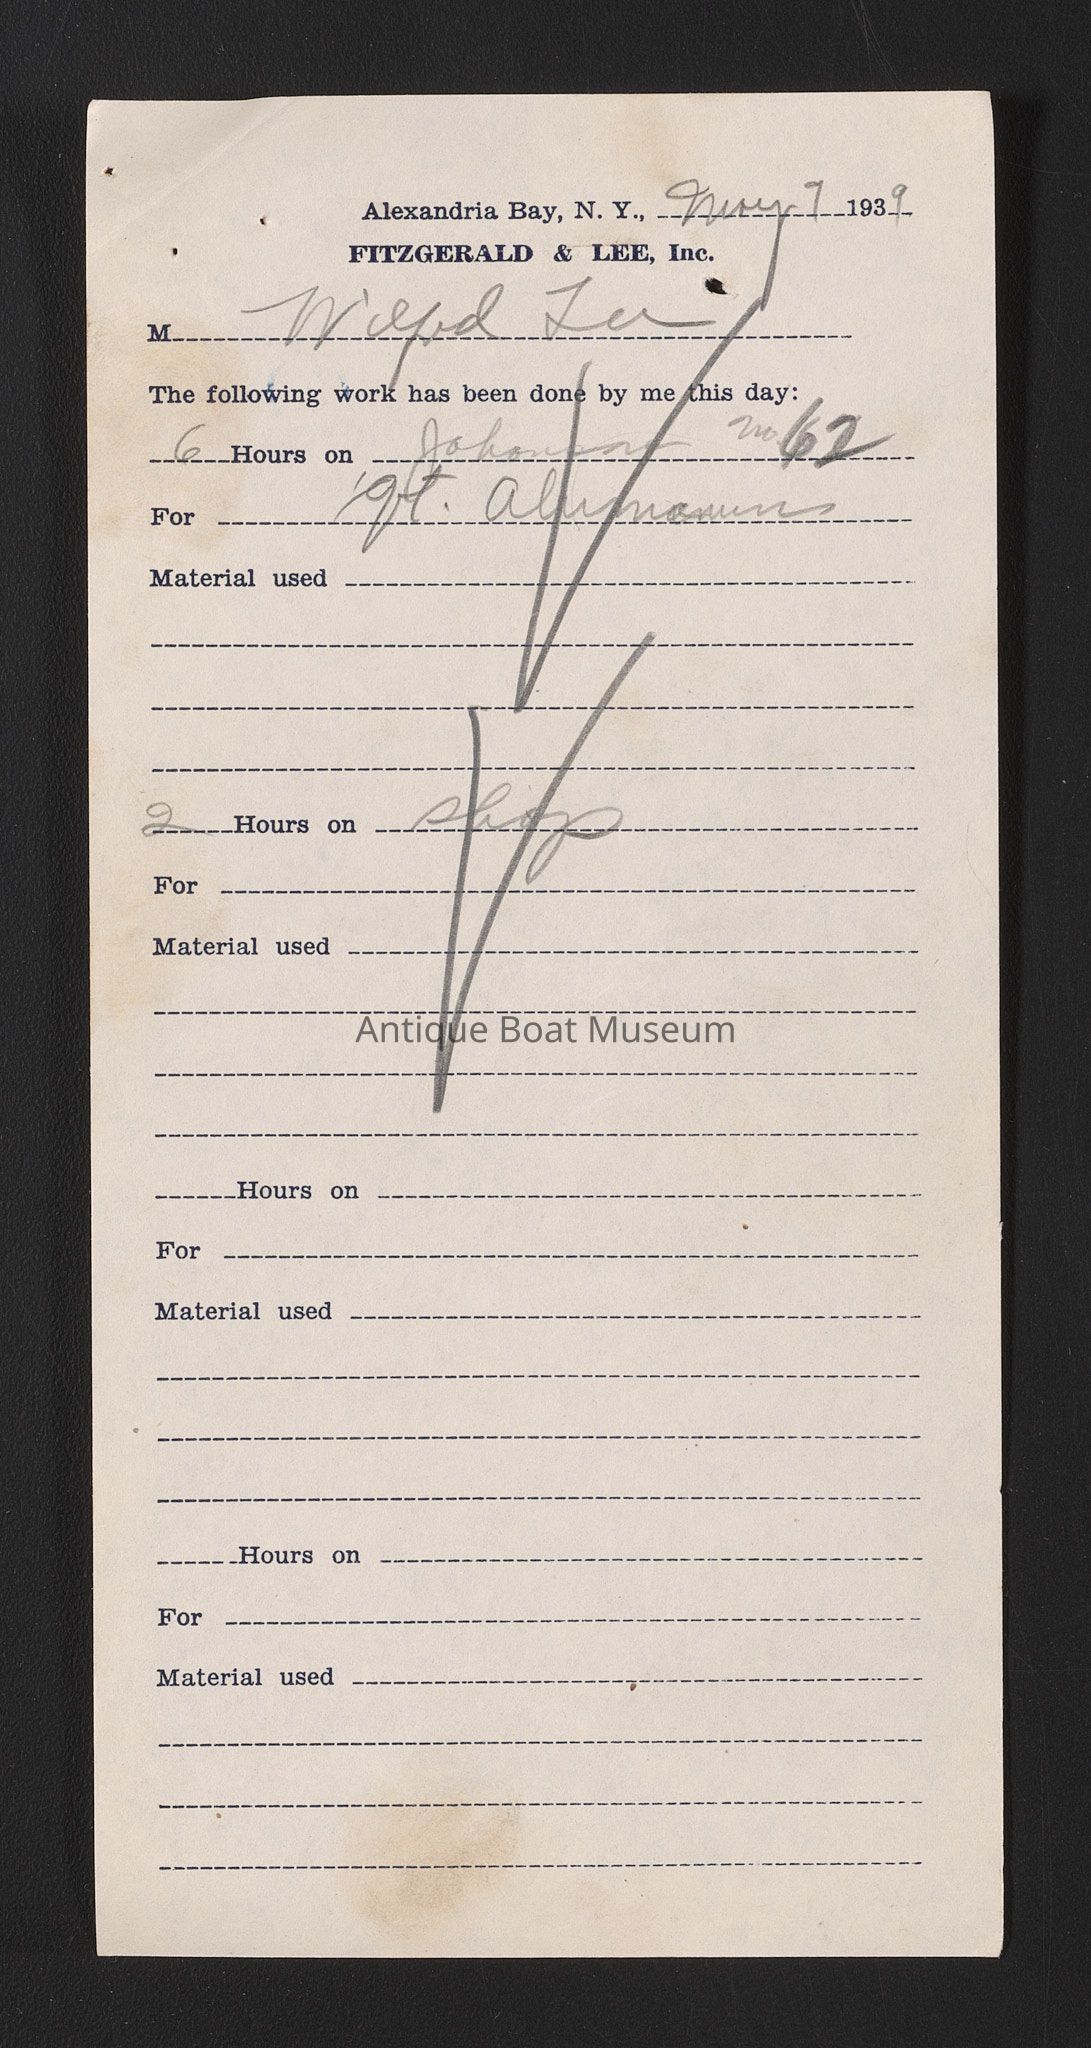 Alexandria Bay, N. Y., May 7 1939
FITZGERALD & LEE, Inc.
M Wilfred Lee
The following work has been done by me this day:
6 Hours on Johnson no 62
For 1 qt. Aluminum
Material used
2 Hours on shop
For
Material used
Antique Boat Museum
Hours on
For
Material used
Hours on
For
Material used